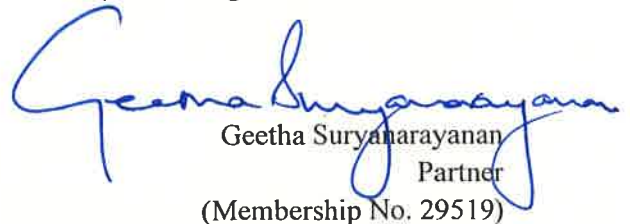 Geetha Suryanarayanan
Geetha Suryanarayanan
Partner
(Membership No. 29519)